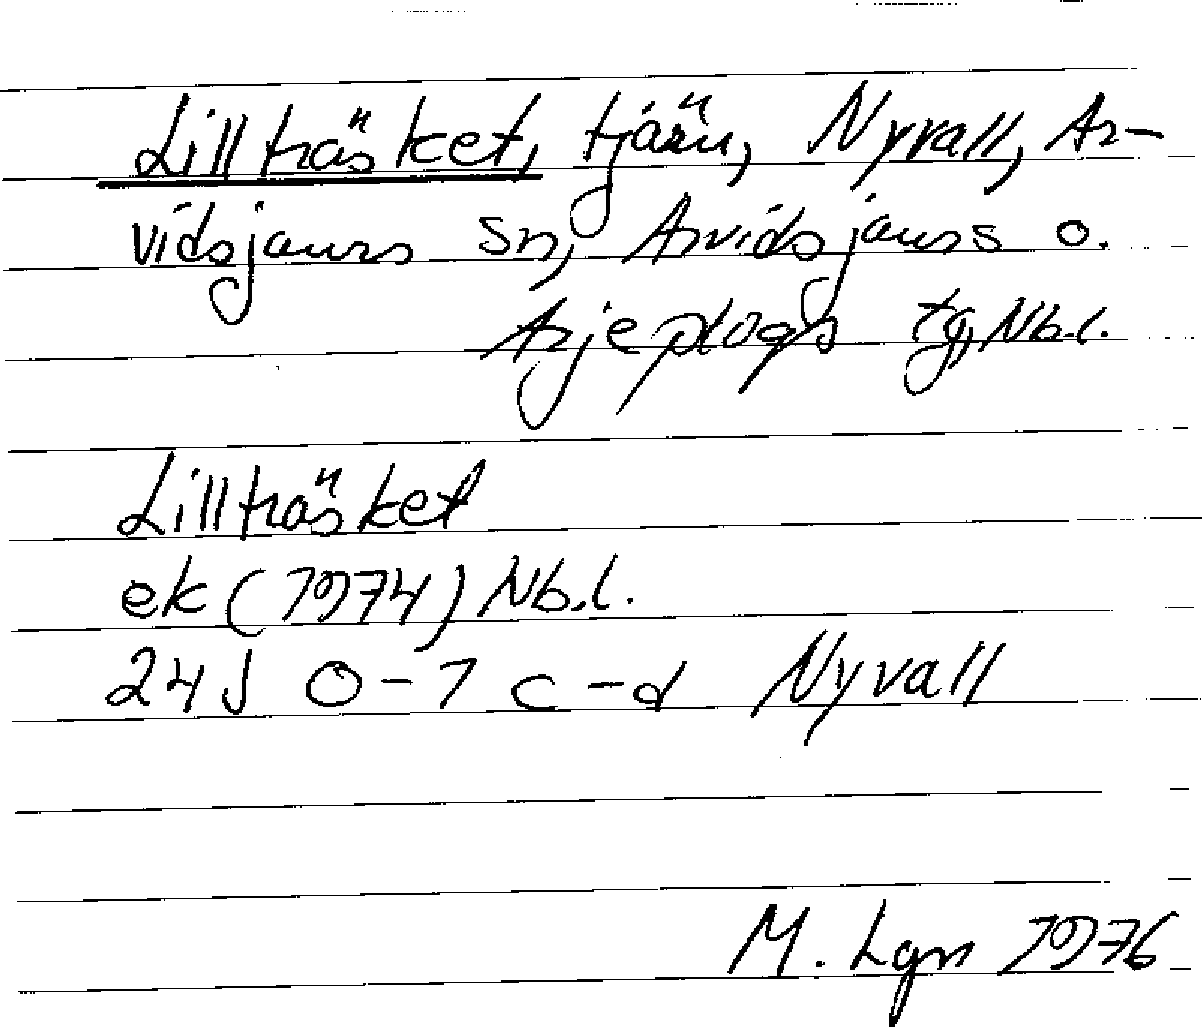 Lillträsket, tjärn, Nyvall, Ar-
vidsjaurs sn, Arvidsjaurs o.
Arjeplogs tg, Nb.l.
Lillträsket
ek (1974) Nb.l.
24J 0-1 c-d Nyvall
M. Lgn 1976